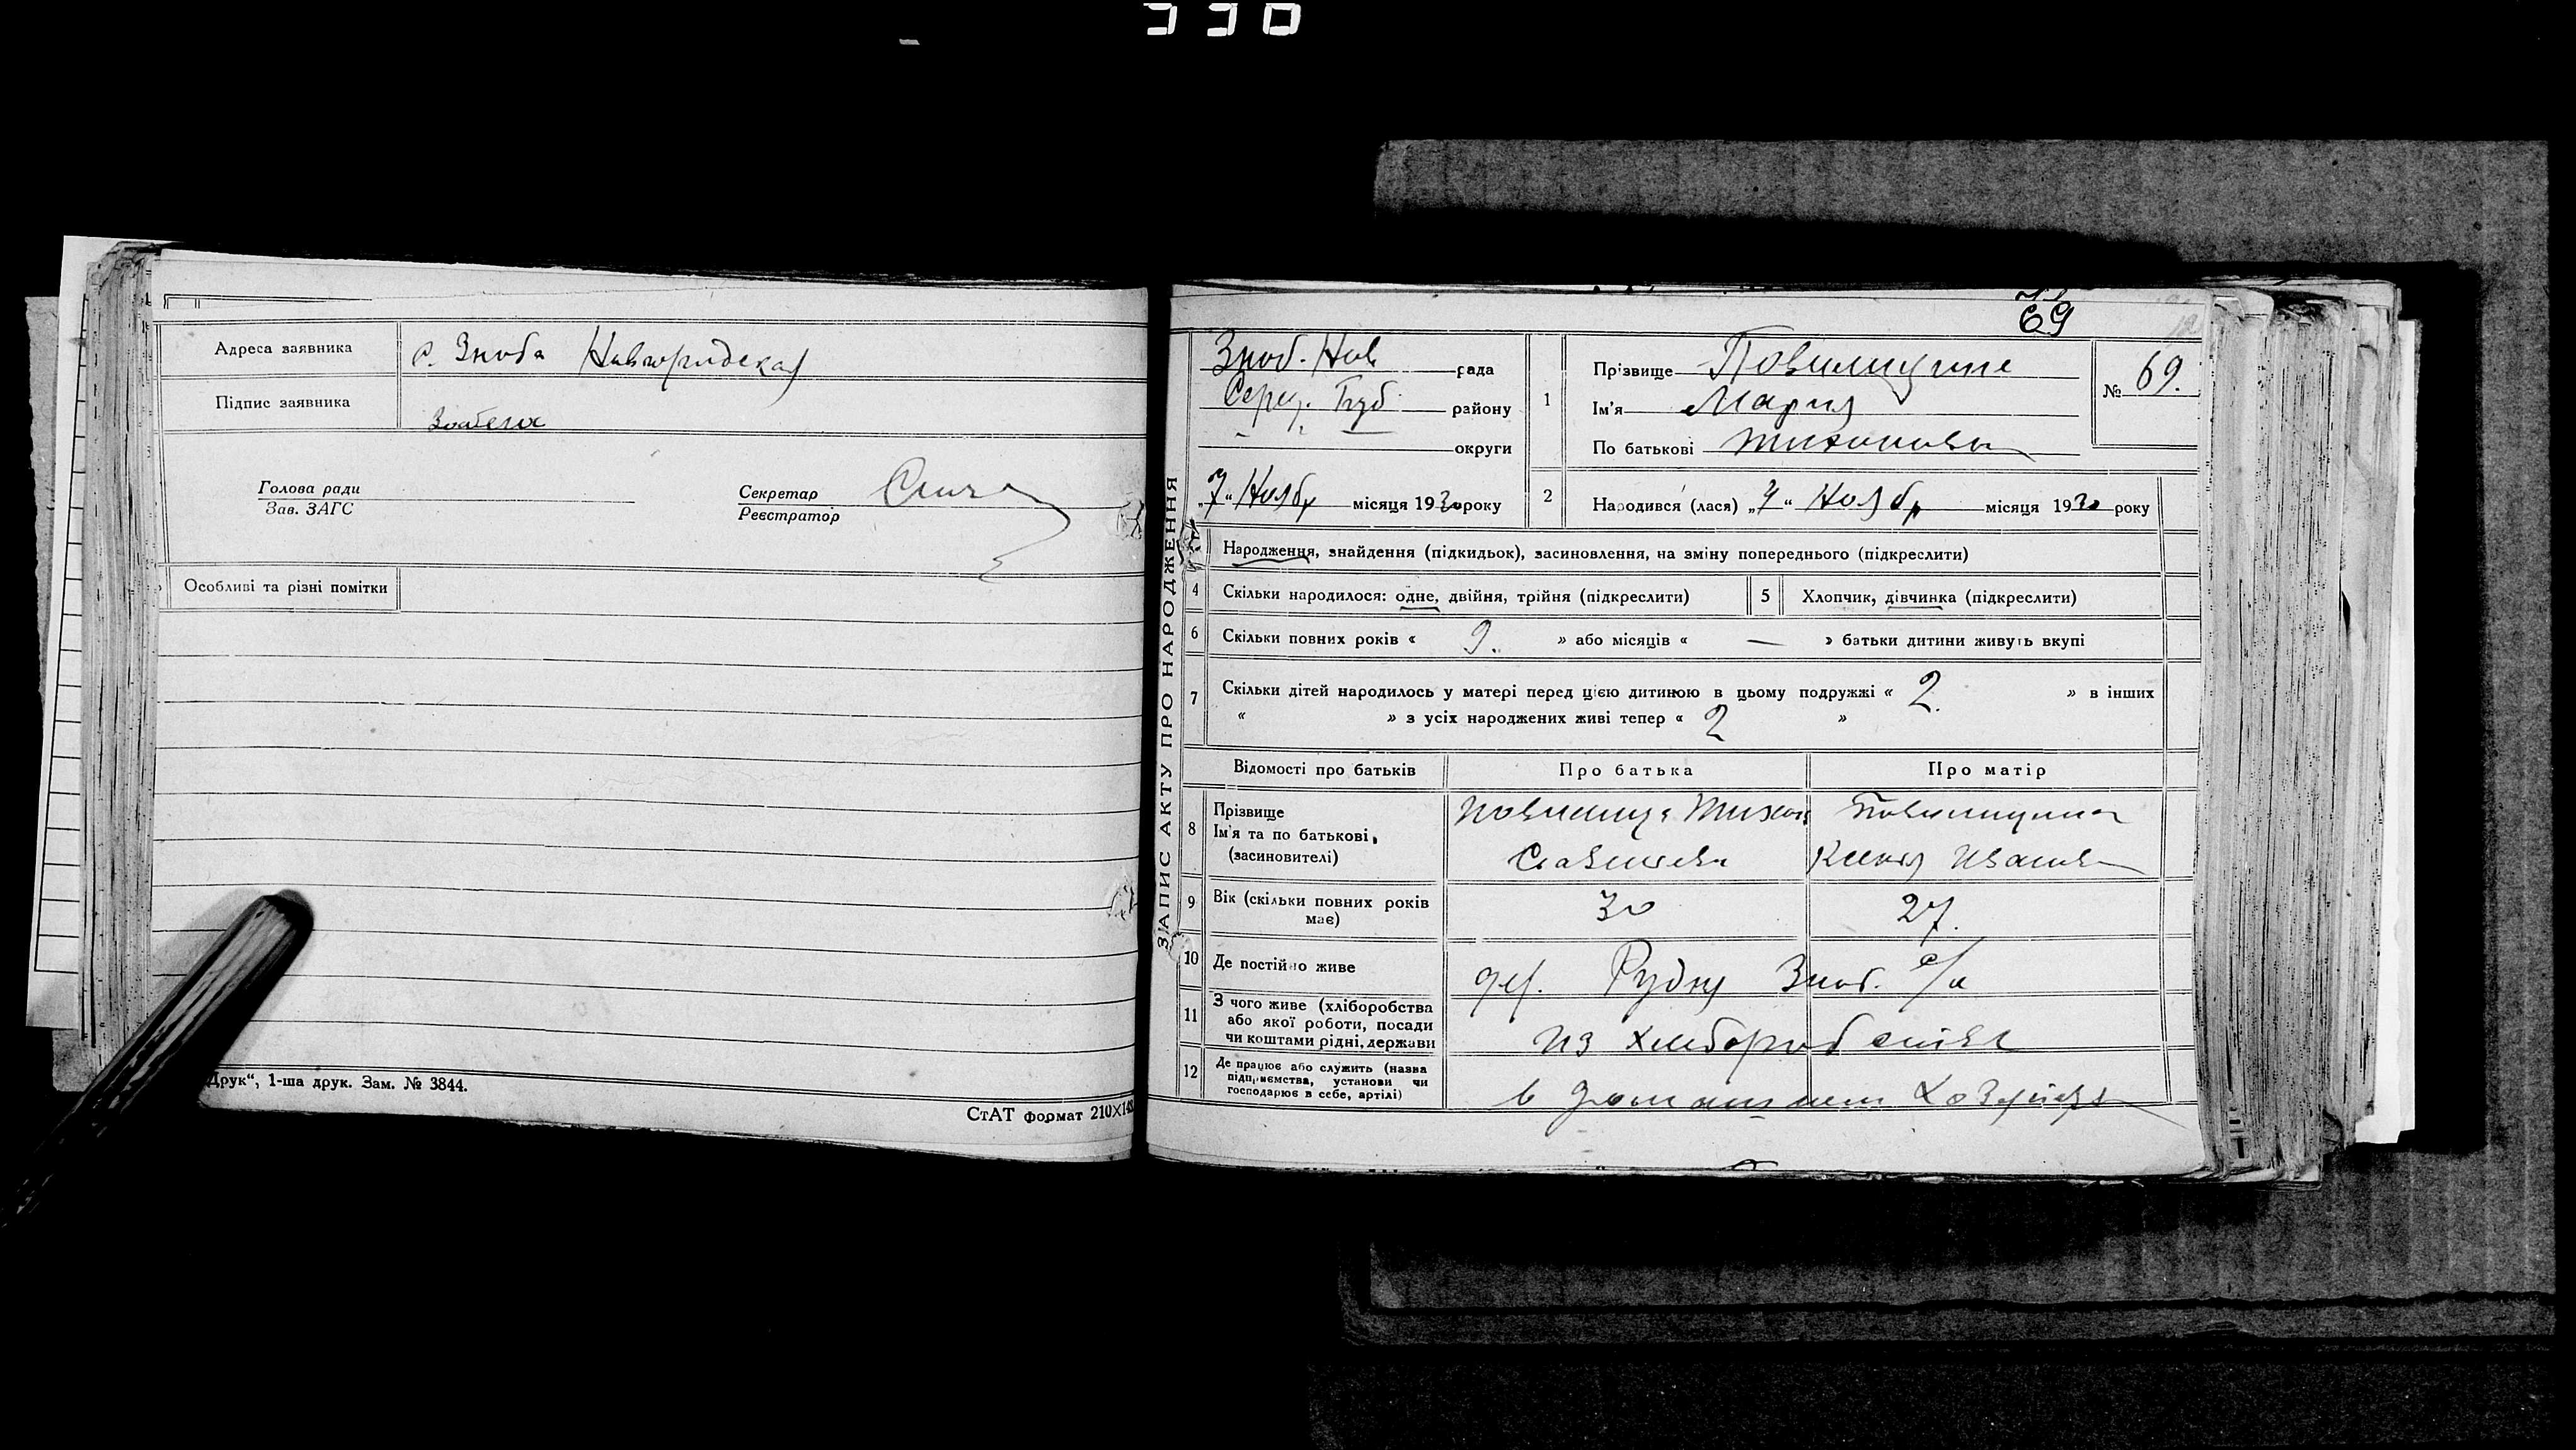 330
Адреса заявника с. Зноба Новгородская
Підпис заявника
Голова ради
Зав. ЗАГС
Секретар
Реєстратор
Особливі та різні помітки
Друк“, 1-ша друк. Зам. № 3844.
СтАТ формат 210×148
69
ЗАПИС АКТУ ПРО НАРОДЖЕННЯ
Зноб. Нов рада
Серед. Буд района
округи
„7“ Ноябр місяця 1930 року
1 Прізвище
Ім'я Мария
По батькові Тихоновна
№ 69.
2 Народився (лася) „4“ Ноябр місяця 1930 року
Народження, знайдення (підкидьок), засиновлення, на зміну попереднього (підкреслити)
4 Скільки народилося: одне, двійня, трійня (підкреслити)
5 Хлопчик, дівчинка (підкреслити)
6 Скільки повних років « 9. » або місяців « — » батьки дитини живуть вкупі
7 Скільки дітей народилось у матері перед цією дитиною в цьому подружжі « 2. » в інших
« » з усіх народжених живі тепер « 2 »
Відомості про батьків Про батька Про матір
8 Прізвище
Ім'я та по батькові,
(засиновителі)
Тихон
Иванов
9 Вік (скільки повних років має) 30 27.
10 Де постійно живе дер. Рудня Зноб. с/р
11 З чого живе (хліборобства
або якої роботи, посади
чи коштами рідні, держави
из хлеборобства
12 Де працює або служить (назва
підприємства, установи чи
господарює в себе, артілі)
в домашнем